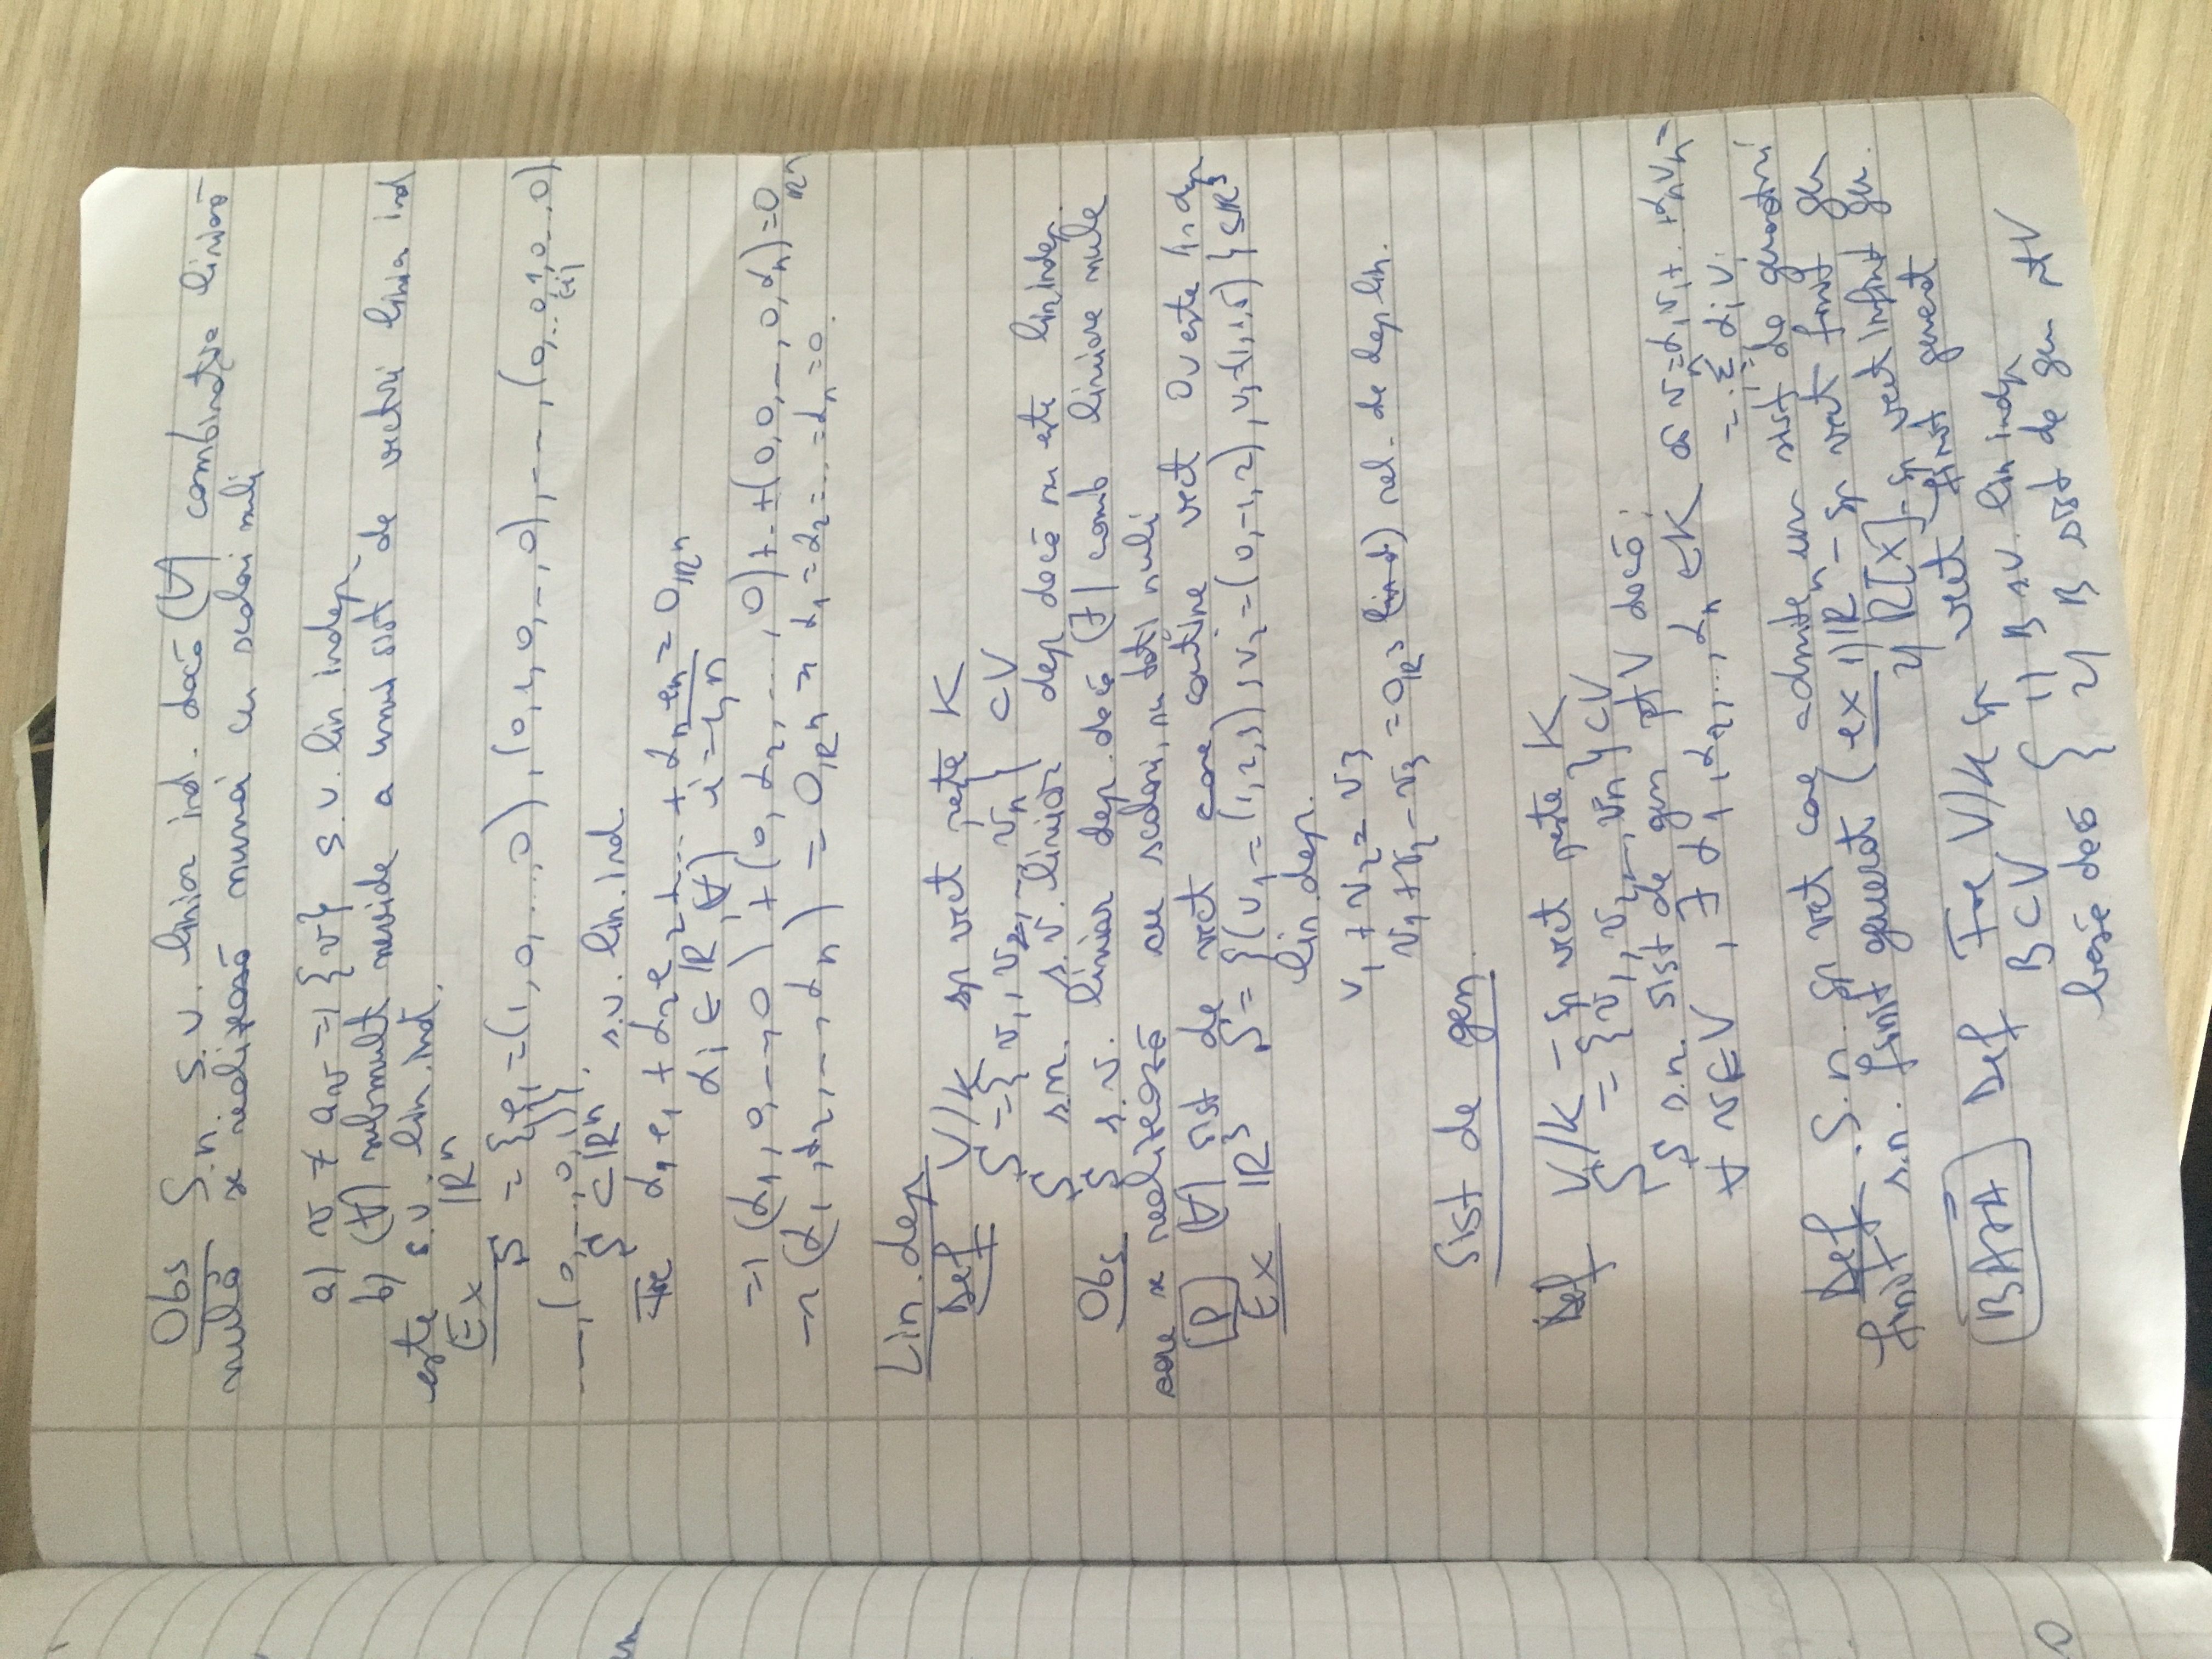 Obs S.n. s.v. liniar ind. dacă (∀) combinație liniară
nulă se realizează numai cu scalari nuli
a) v ≠ 0v => {v} s.v. lin. indep
b) (∀) submult nevide a unui sist de vectori liniar ind
este s.v. lin. ind.
Ex ℝⁿ
S = {e₁ = (1, 0, ..., 0), (0, 1, 0, ..., 0), ..., (0, ... 0, 1, 0 ... 0)
(i)
..., (0, ..., 0, 1)}.
S ⊂ ℝⁿ s.v. lin. ind.
Fie α₁e₁ + α₂e₂ + ... + αₙeₙ = 0ℝⁿ
αᵢ ∈ ℝ, (∀) i = 1,n
=> (α₁, 0, ..., 0) + (0, α₂, ..., 0) + .. + (0, 0, ..., 0, αₙ) = 0ℝⁿ
=> (α₁, α₂, ..., αₙ) = 0ℝⁿ => α₁ = α₂ = ... = αₙ = 0.
Lin. dep
Def V/K sp vect peste K
S = {v₁, v₂, ..., vₙ} ⊂ V
S s.n. s.v. liniar dep dacă nu este lin indep.
Obs S s.v. liniar dep. dacă (∃) comb liniare nule
care se realizează cu scalari, nu toți nuli
P (∀) sist de vect care conține vect 0v este lin dep
Ex ℝ³ S = {(v₁ = (1, 2, 3), v₂ = (0, -1, 2), v₃ = (1, 1, 5)} ⊆ ℝ³
lin. dep.
v₁ + v₂ = v₃
v₁ + v₂ - v₃ = 0ℝ³ rel. de dep lin.
Sist de gen.
Def V/K - sp vect peste K
S = {v₁, v₂, ..., vₙ} ⊂ V
S s.n. sist de gen pt V dacă:
∀ v ∈ V, ∃ α₁, α₂, ..., αₙ ∈ K aî v = α₁v₁ + .. + αₙvₙ =
= Σⁿᵢ₌₁ αᵢvᵢ
Def. S.n. sp vect care admite un sist de generatori
finit s.n. finit generat (ex 1) ℝⁿ - sp vect finit gen
2) R[X] - sp vect infinit gen.
BAZĂ Def Fie V/K sp vect finit generat
B ⊂ V 1) B s.v. lin indp
bază dacă { 2) B sist de gen pt V